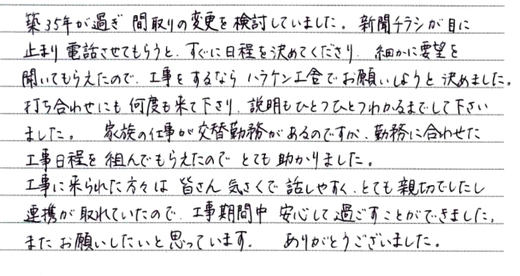 築35年が過ぎ 間取りの変更を検討していました。新聞チラシが目に
止まり 電話させてもらうと、すぐに日程を決めてくださり、細かに要望を
聞いてもらえたので、工事をするなら ハラケン工舎でお願いしようと決めました。
打ち合わせにも 何度も来て下さり、説明もひとつひとつわかるまでして下さい
ました。 家族の仕事が交替勤務があるのですが、勤務に合わせた
工事日程を組んでもらえたので とても助かりました。
工事に来られた方々は 皆さん 気さくで 話しやすく、とても親切でしたし
連携が取れていたので、工事期間中 安心して過ごすことができました。
また お願いしたいと思っています。 ありがとうございました。